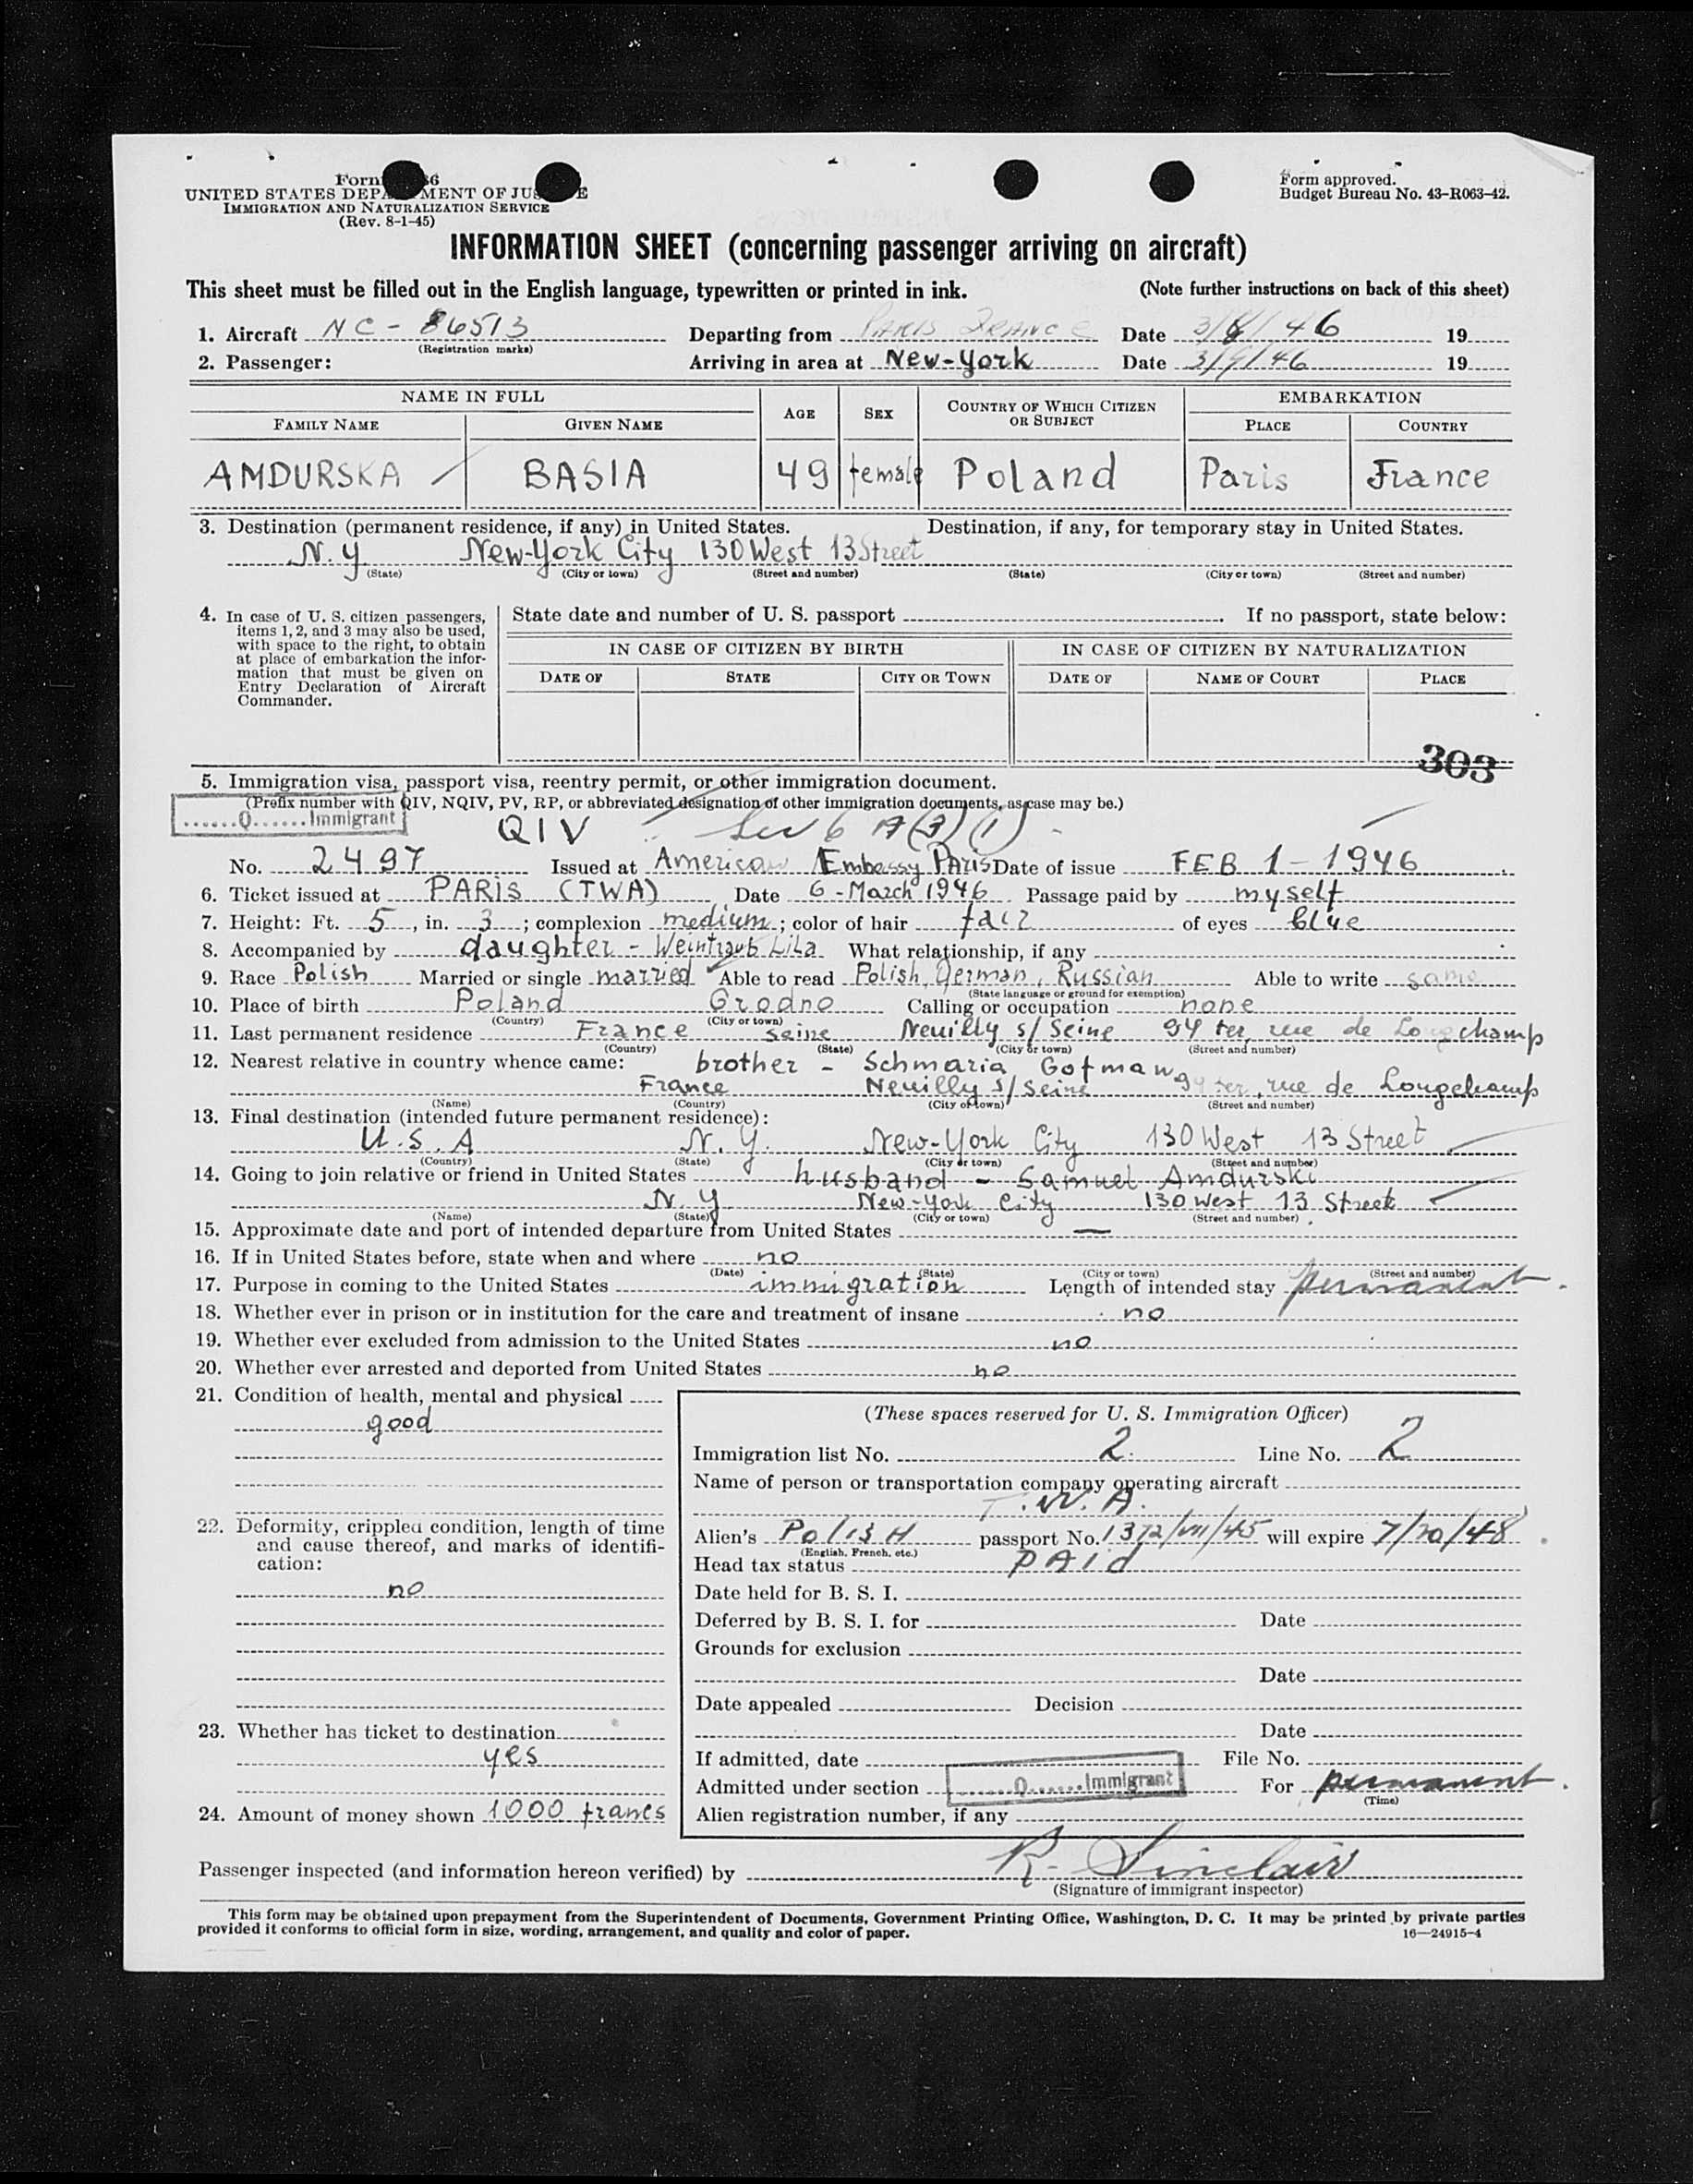 Form
UNITED STATES DEPA MENT OF JUS E
IMMIGRATION AND NATURALIZATION SERVICE
(Rev. 8-1-45)
Form approved.
Budget Bureau No. 43-R063-42.
INFORMATION SHEET (concerning passenger arriving on aircraft)
This sheet must be filled out in the English language, typewritten or printed in ink. (Note further instructions on back of this sheet)
1. Aircraft NC - 86513 Departing from PARIS FRANCE Date 3/8/46 19
(Registration marks)
2. Passenger: Arriving in area at New-York Date 3/9/46 19
NAME IN FULL AGE SEX COUNTRY OF WHICH CITIZEN OR SUBJECT EMBARKATION
FAMILY NAME GIVEN NAME PLACE COUNTRY
AMDURSKA BASIA 49 female Poland Paris France
3. Destination (permanent residence, if any) in United States. Destination, if any, for temporary stay in United States.
N.Y New-York City 130 West 13 Street
(State) (City or town) (Street and number) (State) (City or town) (Street and number)
4. In case of U. S. citizen passengers, items 1, 2, and 3 may also be used, with space to the right, to obtain at place of embarkation the information that must be given on Entry Declaration of Aircraft Commander.
State date and number of U. S. passport . If no passport, state below:
IN CASE OF CITIZEN BY BIRTH IN CASE OF CITIZEN BY NATURALIZATION
DATE OF STATE CITY OR TOWN DATE OF NAME OF COURT PLACE
303
5. Immigration visa, passport visa, reentry permit, or other immigration document.
(Prefix number with QIV, NQIV, PV, RP, or abbreviated designation of other immigration documents, as case may be.)
......Q......Immigrant
QIV Sec 6 A(3)(1)
No. 2497 Issued at American Embassy PARIS Date of issue FEB 1-1946
6. Ticket issued at PARIS (TWA) Date 6-March 1946 Passage paid by myself
7. Height: Ft. 5, in. 3; complexion medium; color of hair fair of eyes blue
8. Accompanied by daughter - Weintraub Lila What relationship, if any
9. Race Polish Married or single married Able to read Polish, German, Russian Able to write same
(State language or ground for exemption)
10. Place of birth Poland Grodno Calling or occupation none
(Country) (City or town)
11. Last permanent residence France Seine Neuilly s/Seine 94 ter, rue de Longchamp
(Country) (State) (City or town) (Street and number)
12. Nearest relative in country whence came: brother - Schmaria Gofman
France Neuilly s/Seine 94 ter, rue de Longchamp
(Name) (Country) (City or town) (Street and number)
13. Final destination (intended future permanent residence):
U.S.A N.Y. New-York City 130 West 13 Street
(Country) (State) (City or town) (Street and number)
14. Going to join relative or friend in United States husband - Samuel Amdurski
N.Y New-York City 130 West 13 Street
(Name) (State) (City or town) (Street and number)
15. Approximate date and port of intended departure from United States —
16. If in United States before, state when and where no
(Date) (State) (City or town) (Street and number)
17. Purpose in coming to the United States immigration Length of intended stay permanent
18. Whether ever in prison or in institution for the care and treatment of insane no
19. Whether ever excluded from admission to the United States no
20. Whether ever arrested and deported from United States no
21. Condition of health, mental and physical
good
22. Deformity, crippled condition, length of time and cause thereof, and marks of identification:
no
23. Whether has ticket to destination
yes
24. Amount of money shown 1000 francs
(These spaces reserved for U. S. Immigration Officer)
Immigration list No. 2 Line No. 2
Name of person or transportation company operating aircraft
T.W.A.
Alien's POLISH passport No. 1372/VII/45 will expire 7/20/48
(English, French, etc.)
Head tax status PAId
Date held for B. S. I.
Deferred by B. S. I. for Date
Grounds for exclusion
Date
Date appealed Decision
Date
If admitted, date File No.
Admitted under section ......Q......Immigrant For permanent
(Time)
Alien registration number, if any
Passenger inspected (and information hereon verified) by R. Sinclair
(Signature of immigrant inspector)
This form may be obtained upon prepayment from the Superintendent of Documents, Government Printing Office, Washington, D. C. It may be printed by private parties
provided it conforms to official form in size, wording, arrangement, and quality and color of paper. 16—24915-4